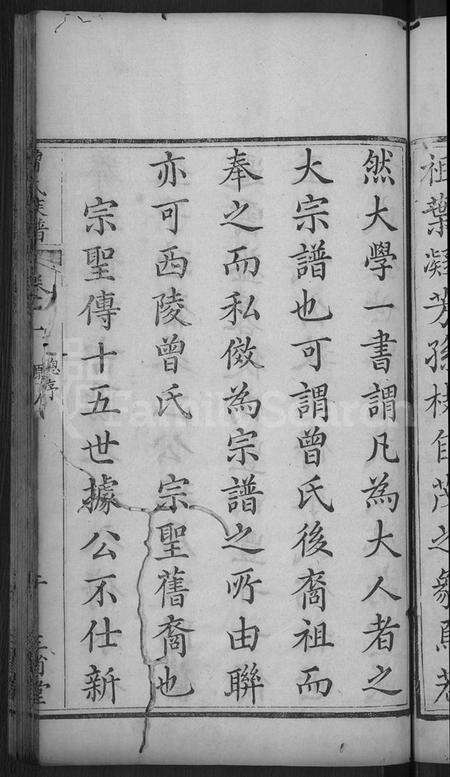 祖葉凝芳孫枝自茂之象焉若
然大學一書謂凡為大人者之
大宗譜也可謂曾氏後裔祖而
奉之而私倣為宗譜之所由聯
亦可西陵曾氏 宗聖舊裔也
宗聖傳十五世據公不仕新
曾氏族譜
總序
三省堂
FamilySearch